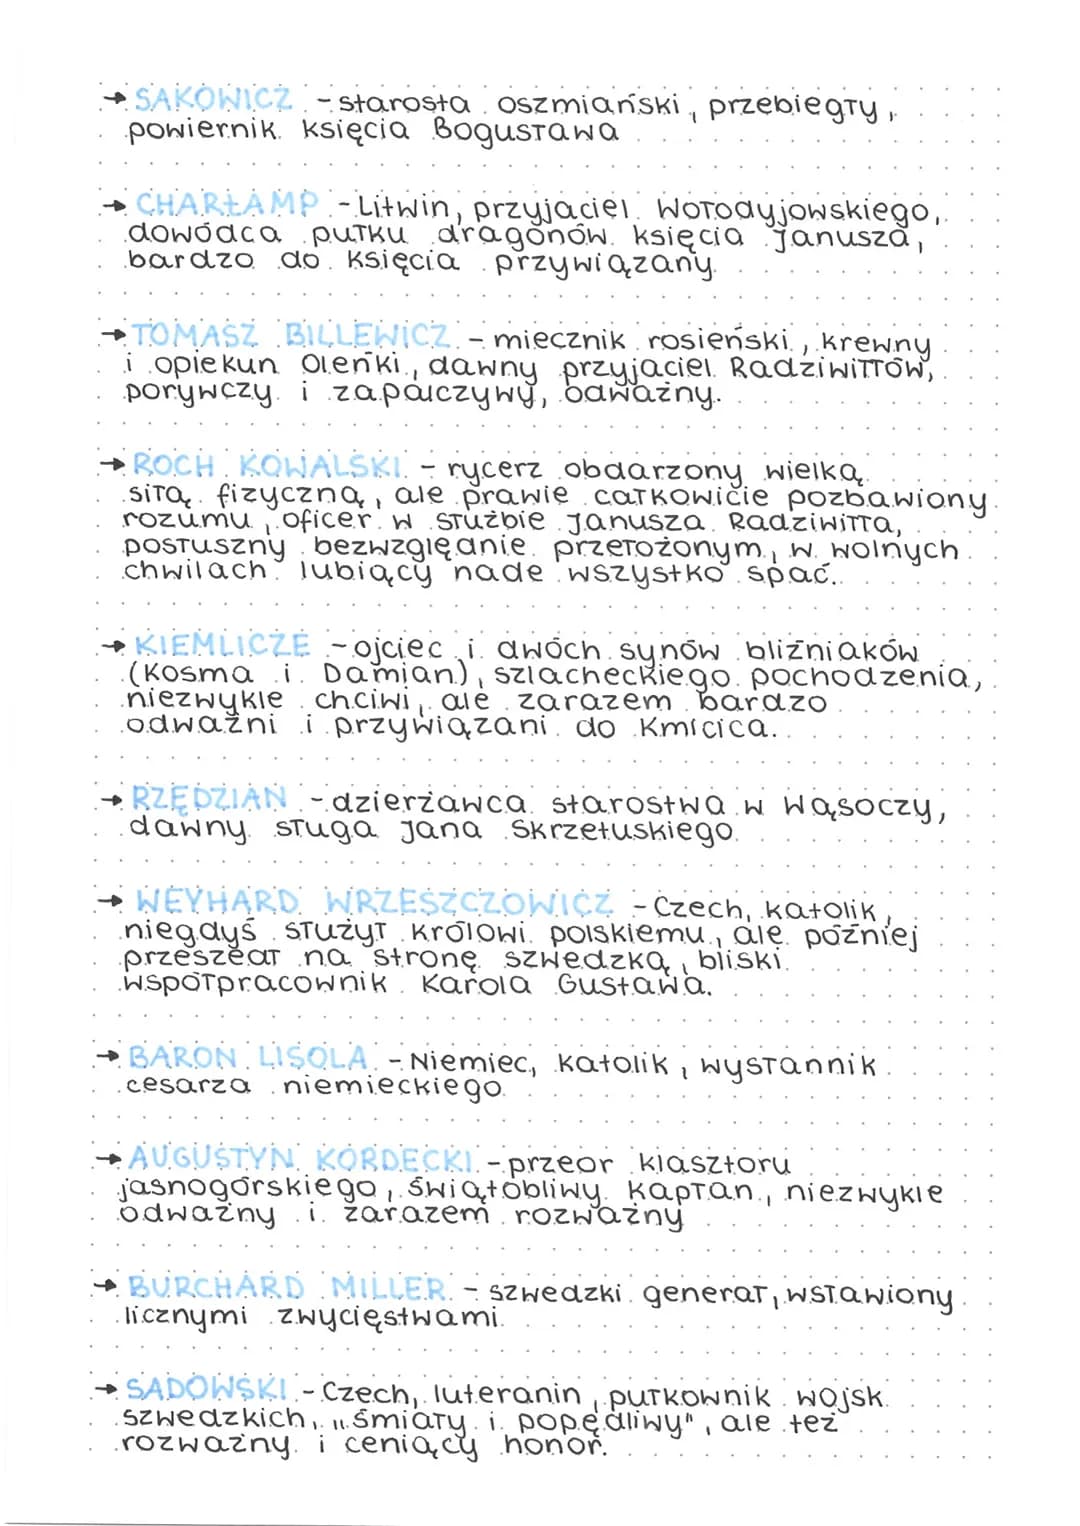 → SAKOWICZ - starosta oszmiański, przebiegły,
powiernik księcia Bogusława
→ CHARŁAMP - Litwin, przyjaciel Wołodyjowskiego,
dowódca pułku dragonów księcia Janusza,
bardzo do księcia przywiązany.
→ TOMASZ BILLEWICZ - miecznik rosieński, krewny
i opiekun Oleńki, dawny przyjaciel Radziwiłłów,
porywczy i zapalczywy, odważny.
→ ROCH KOWALSKI - rycerz obdarzony wielką
siłą fizyczną, ale prawie całkowicie pozbawiony
rozumu, oficer w służbie Janusza Radziwiłła,
posłuszny bezwzględnie przełożonym, w wolnych
chwilach lubiący nade wszystko spać.
→ KIEMLICZE - ojciec i dwóch synów bliźniaków
(Kosma i Damian), szlacheckiego pochodzenia,
niezwykle chciwi, ale zarazem bardzo
odważni i przywiązani do Kmicica.
→ RZĘDZIAN - dzierżawca starostwa w Wąsoczy,
dawny sługa Jana Skrzetuskiego.
→ WEYHARD WRZESZCZOWICZ - Czech, katolik,
niegdyś służył królowi polskiemu, ale później
przeszedł na stronę szwedzką, bliski
współpracownik Karola Gustawa.
→ BARON LISOLA - Niemiec, katolik, wysłannik
cesarza niemieckiego.
→ AUGUSTYN KORDECKI - przeor klasztoru
jasnogórskiego, świątobliwy kapłan, niezwykle
odważny i zarazem rozważny
→ BURCHARD MILLER - szwedzki generał, wsławiony
licznymi zwycięstwami.
→ SADOWSKI - Czech, luteranin, pułkownik wojsk
szwedzkich, „śmiały i popędliwy", ale też
rozważny i ceniący honor.